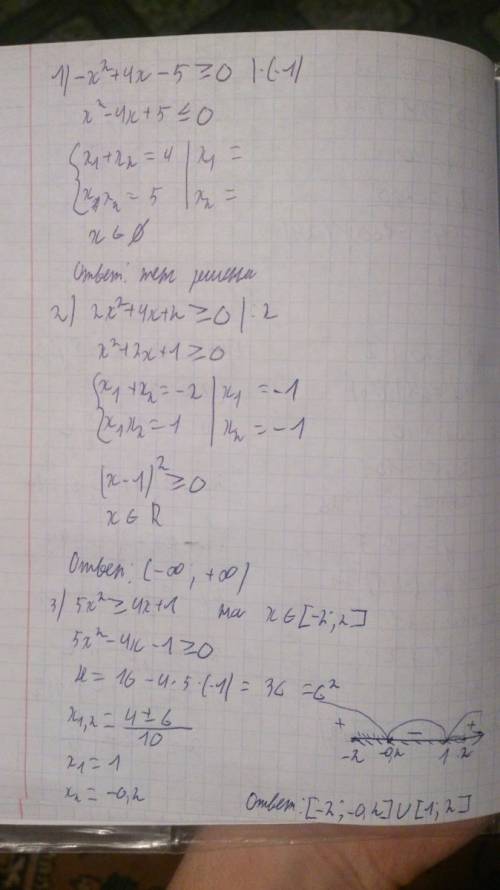 1) -x²+4x-5≥0 |·(-1)
x²-4x+5≤0
{x₁+x₂=4 | x₁=
{x₁x₂=5 | x₂=
x∈∅
Ответ: нет решения
2) 2x²+4x+2≥0 |:2
x²+2x+1≥0
{x₁+x₂=-2 | x₁=-1
{x₁x₂=1 | x₂=-1
(x-1)²≥0
x∈R
Ответ: (-∞, +∞)
3) 5x²≥4x+1 на x∈[-2;2]
5x²-4x-1≥0
D=16-4·5·(-1)=36=6²
x₁,₂=(4±6)/10
+ - +
-2 -0,2 1 2
x₁=1
x₂=-0,2
Ответ: [-2;-0,2]∪[1;2]